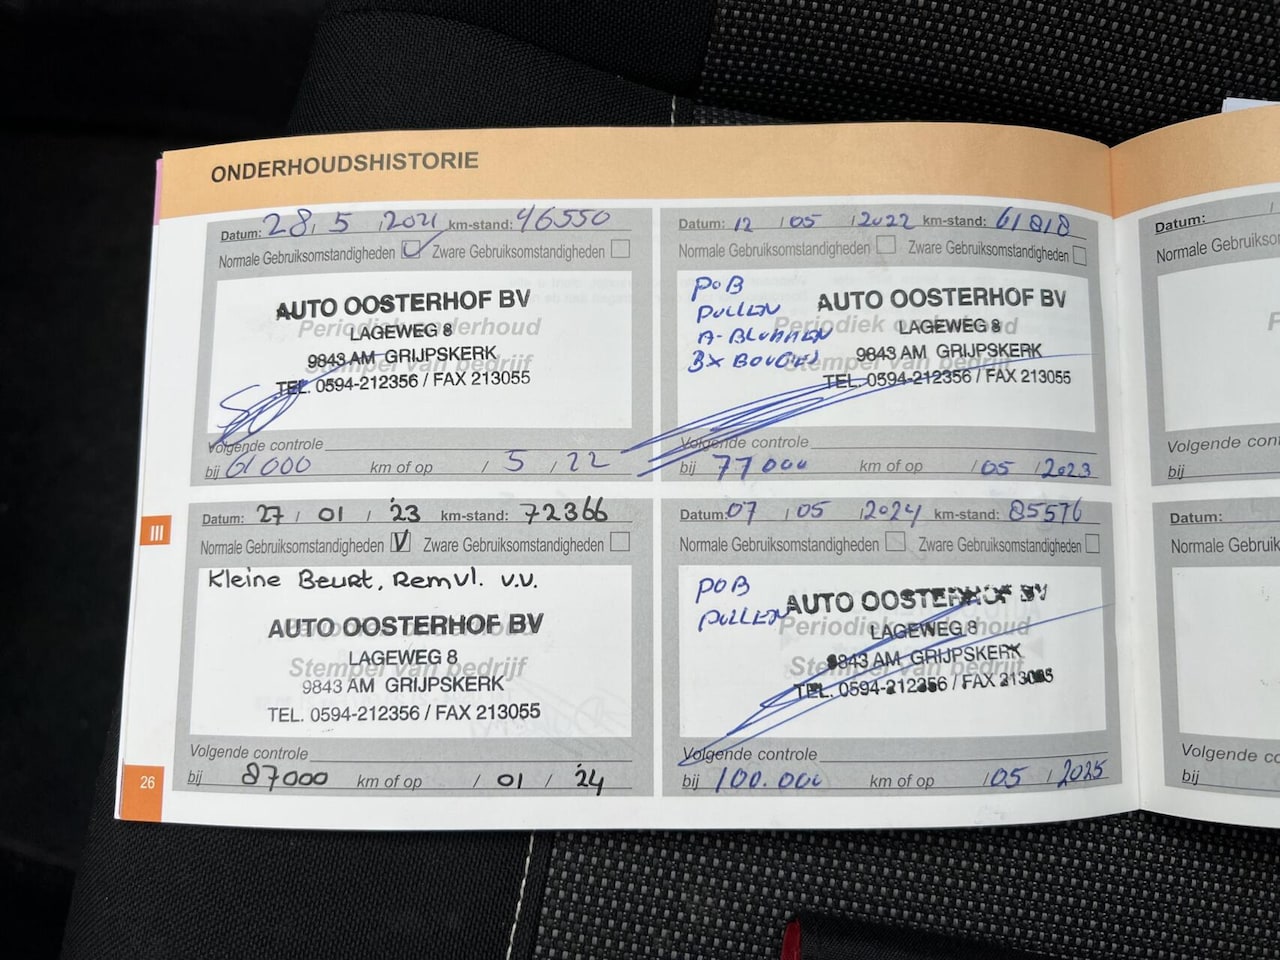 ONDERHOUDSHISTORIE
Datum: 28/5/2021 km-stand: 46550
Normale Gebruiksomstandigheden Zware Gebruiksomstandigheden
AUTO OOSTERHOF BV
Periodiek onderhoud
LAGEWEG 8
9843 AM GRIJPSKERK
Stempel van bedrijf
TEL. 0594-212356 / FAX 213055
Volgende controle
bij 61000 km of op / 5 / 22
Datum: 12 / 05 / 2022 km-stand: 61818
Normale Gebruiksomstandigheden Zware Gebruiksomstandigheden
POB
PULLEN
AUTO OOSTERHOF BV
Periodiek onderhoud
LAGEWEG 8
9843 AM GRIJPSKERK
3X BOUGIES
Stempel van bedrijf
TEL. 0594-212356 / FAX 213055
Volgende controle
bij 77000 km of op / 05 / 2023
III
Datum: 27 / 01 / '23 km-stand: 72366
Normale Gebruiksomstandigheden V Zware Gebruiksomstandigheden
Kleine Beurt, Remvl. v.v.
AUTO OOSTERHOF BV
Periodiek onderhoud
LAGEWEG 8
Stempel van bedrijf
9843 AM GRIJPSKERK
TEL. 0594-212356 / FAX 213055
Volgende controle
bij 87000 km of op / 01 / '24
Datum: 07 / 05 / 2024 km-stand: 85576
Normale Gebruiksomstandigheden Zware Gebruiksomstandigheden
POB
PULLEN
AUTO OOSTERHOF BV
Periodiek onderhoud
LAGEWEG 8
9843 AM GRIJPSKERK
Stempel van bedrijf
TEL. 0594-212356 / FAX 213055
Volgende controle
bij 100.000 km of op / 05 / 2025
26
Datum: /
Normale Gebruikso
Volgende con
bij
Datum:
Normale Gebruik
Volgende co
bij